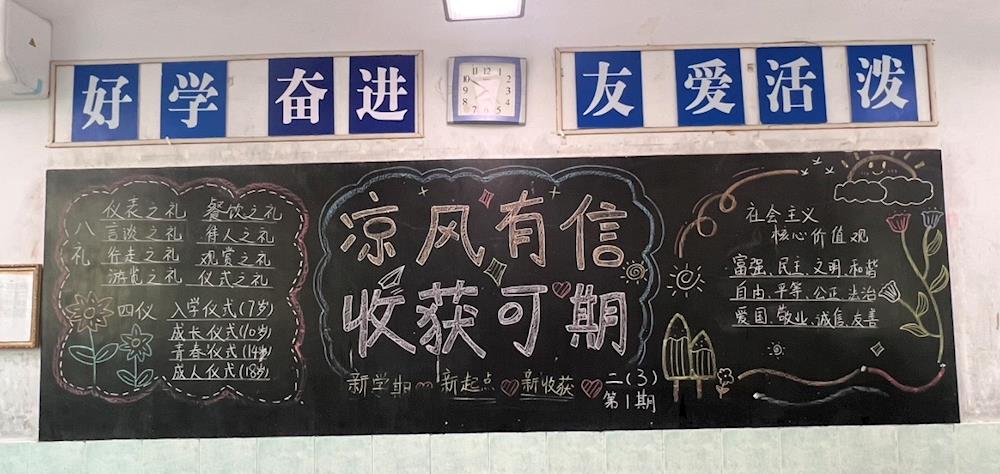 好学奋进
友爱活泼
八礼
仪表之礼 餐饮之礼
言谈之礼 待人之礼
行走之礼 观赏之礼
游览之礼 仪式之礼
四仪
入学仪式(7岁)
成长仪式(10岁)
青春仪式(14岁)
成人仪式(18岁)
凉风有信
收获可期
新学期 新起点 新收获
二(3)
第1期
社会主义
核心价值观
富强、民主、文明、和谐
自由、平等、公正、法治
爱国、敬业、诚信、友善